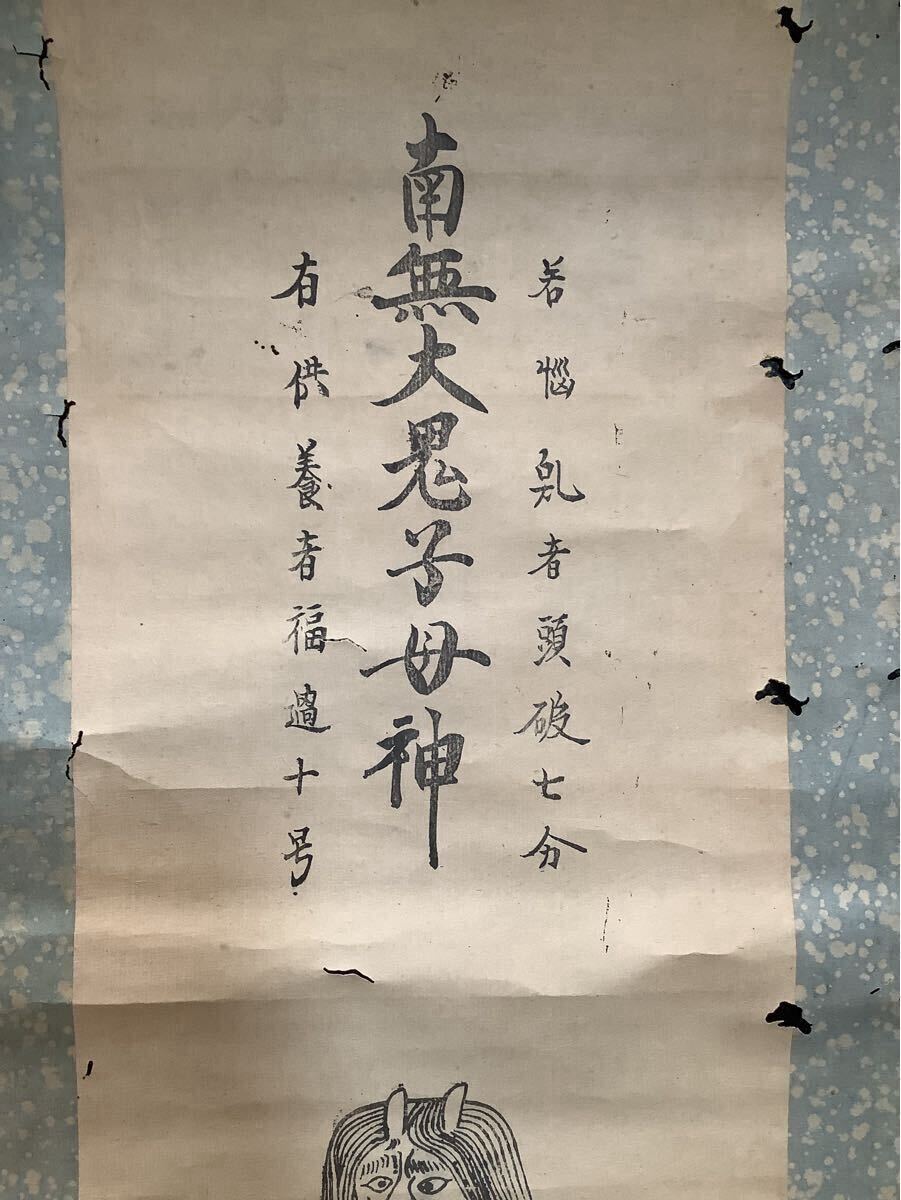 若悩乱者頭破七分
南無大鬼子母神
有供養者福過十号